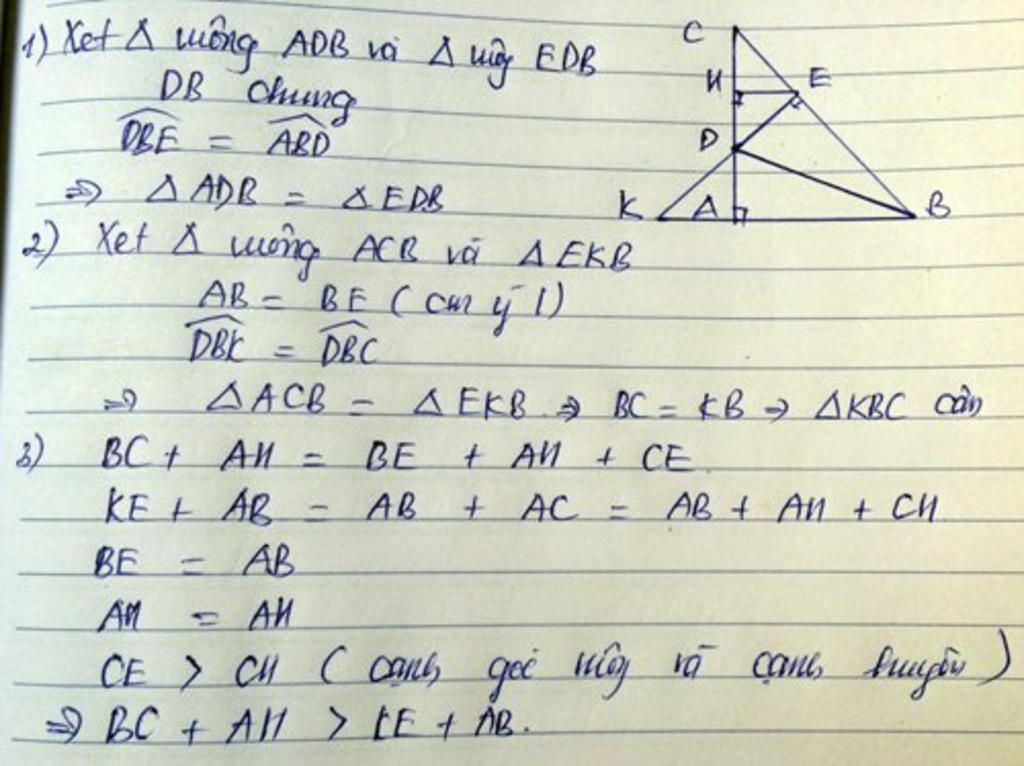 1) Xét Δ vuông ADB và Δ vuông EDB
DB chung
DBE = ABD
⇒ Δ ADB = Δ EDB
2) Xét Δ vuông ACB và Δ EKB
AB = BE ( cm ý 1)
DBK = DBC
⇒ Δ ACB = Δ EKB ⇒ BC = KB ⇒ Δ KBC cân
3) BC + AH = BE + AH + CE
KE + AB = AB + AC = AB + AH + CH
BE = AB
AH = AH
CE > CH ( cạnh góc vuông và cạnh huyền )
⇒ BC + AH > KE + AB.
C
H
E
D
K
A
B